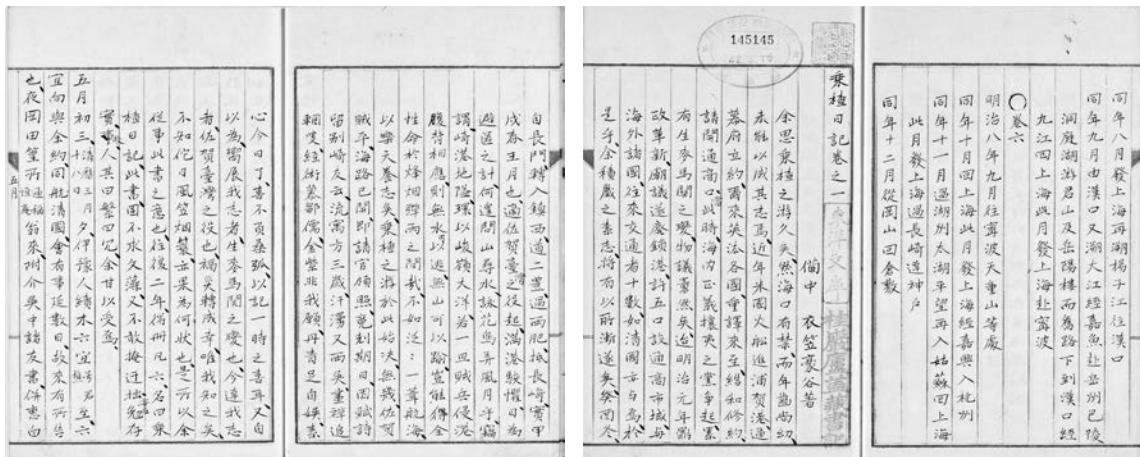 同年八月發上海再溯揚子江往漢口
同年九月由漢口又溯大江經嘉魚赴岳州巴陵
洞庭湖游君山及岳陽樓而舊路下到漢口經
九江回上海此月發上海赴寧波
〇卷六
明治八年九月往寧波天童山等處
同年十月回上海此月發上海經嘉興入杭州
同年十一月過湖州太湖平望再入姑蘇回上海
此月發上海過長崎達神戶
同年十二月從岡山回倉敷
145145
乘槎日記卷之一
備中 衣笠豪谷著
余思乘槎之游久矣然海口有禁而年齒尚幼
未能以成其志焉近年米國火船進浦賀港通
幕府立約爾來英法各國重譯來至締和修約
請開通商口此時海内正義攘夷之黨爭起畧
有生麥馬關之變物議薰然矣迨明治元年鼎
政革新廟議遂廢鎖港許五口設通商市城每
海外諸國往來交通者十數如清國亦与焉於
是乎余積歲之素志將有以所漸遂矣癸酉冬、
自長門轉入鎮西道二豊過両肥抵長崎實甲
戌春王月也、適佐賀臺灣之役起滿港驚懼日為
避匿之計何遑問山尋水詠花弄風月乎竊
謂崎港地隘環以峻嶺大洋若一旦賊兵侵港
腹背相應則無水以逃無山可以踰豈能得全
性命於烽烟彈雨之間哉不如泛泛一葦航海
以樂天養志矣乘槎之游於此始决無幾佐賀
賊平海路已開即請官領照竟刻期日因賦詩
留別崎友云流寓方三歲汗漫又西吳畫禪追
輞叟經術慕鄒儒金紫非我願丹青足自娛素
心今日了喜不負桑弧以記一時之喜耳又自
以為嚮展我志者生麥馬關之變也今達我志
者佐賀臺灣之役也禍矣轉成幸唯我知之矣
不知佗日風笠烟蓑亦果為何狀也是所以余
從事此書之意也往復二年得冊凡六名曰乘
槎日記此書固不水文藻又不敢掩迂拙宛存
實事人其曰繁曰冗余甘以受焉
五月初三日清曆三月 夕伊豫人續木六宜君至六
宜向與余約同航清國會有事延數日故來有所告
也夜岡田篁所通稱恒庵翁來附介吳中諸友書併惠白
五月